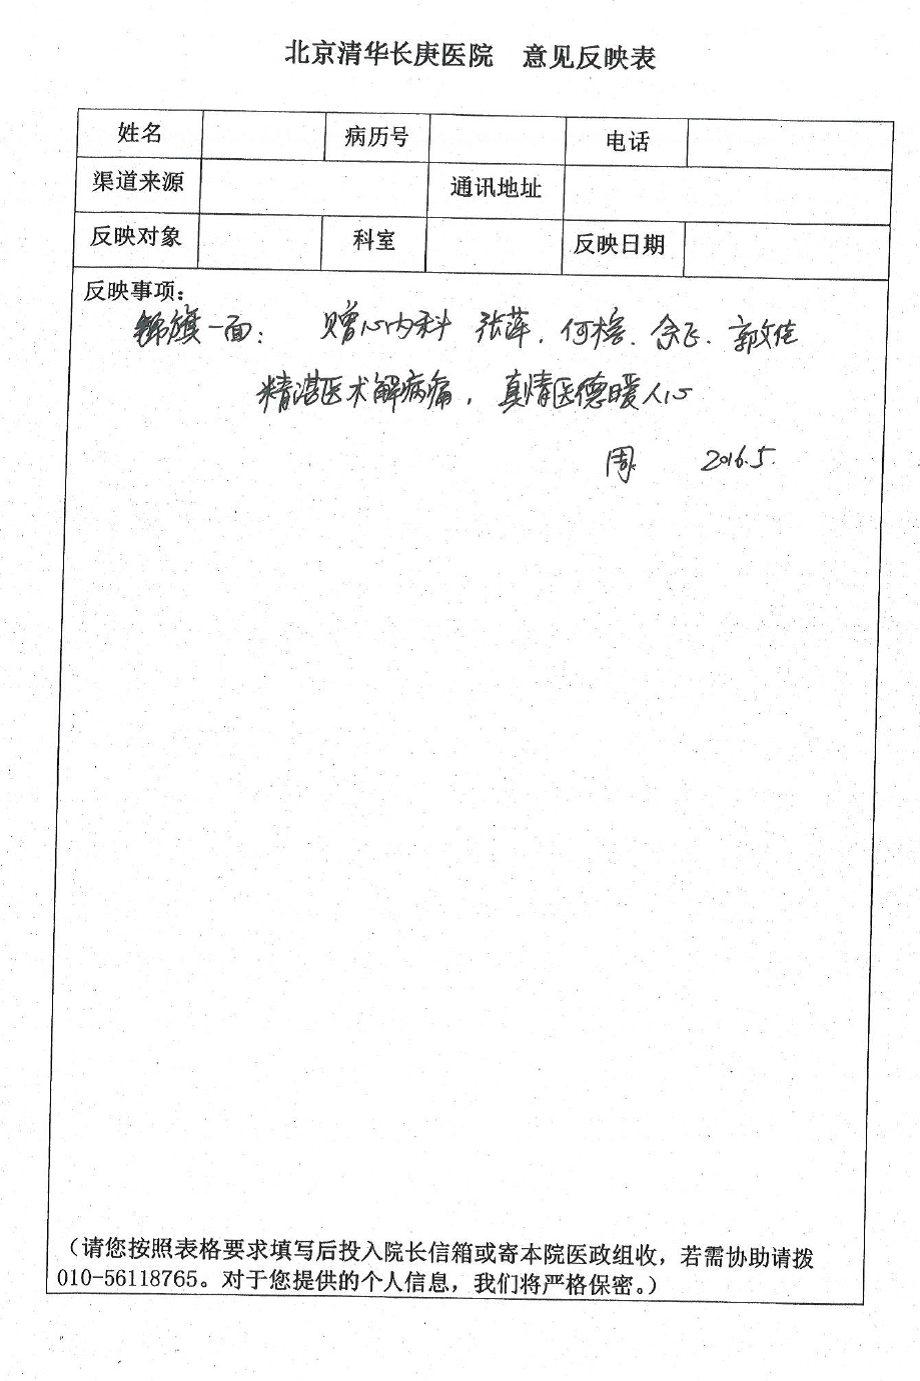 北京清华长庚医院 意见反映表
姓名 病历号 电话
渠道来源 通讯地址
反映对象 科室 反映日期
反映事项:
锦旗一面: 赠心内科 张萍. 何榕. 余飞. 郭文佳
精湛医术解病痛, 真情医德暖人心
周 2016.5.
(请您按照表格要求填写后投入院长信箱或寄本院医政组收,若需协助请拨
010-56118765。对于您提供的个人信息,我们将严格保密。)